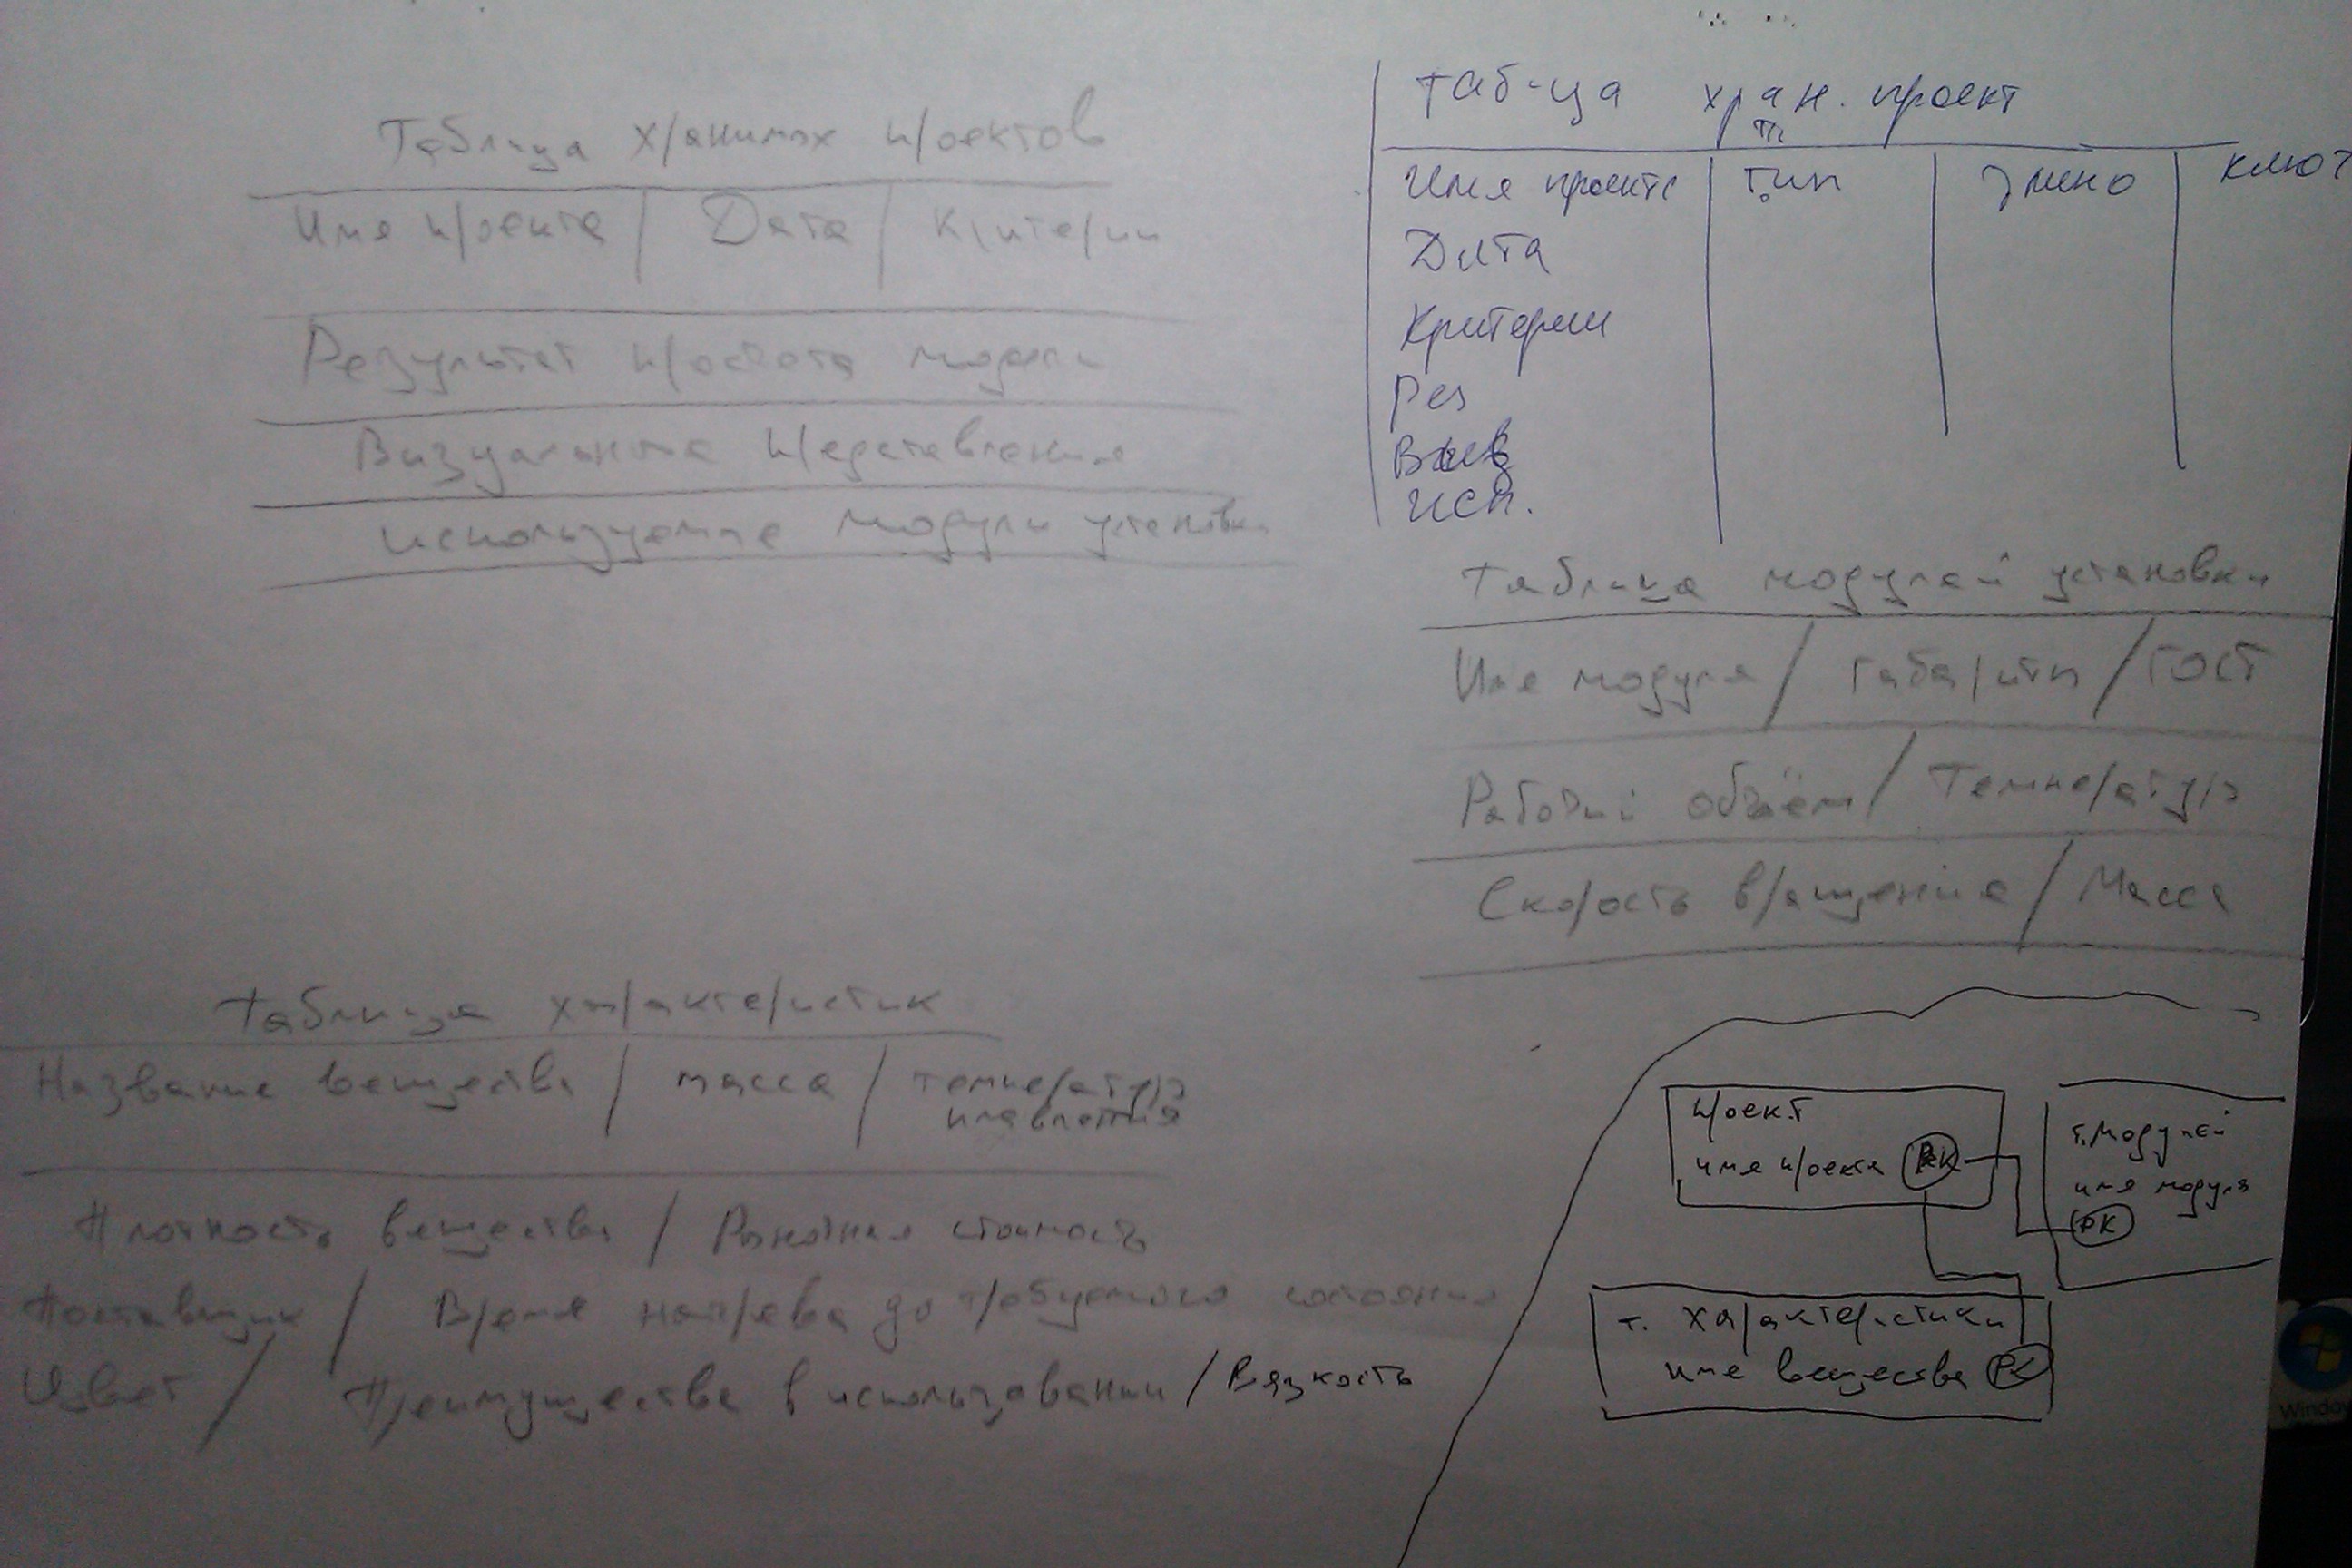 Таблица хранимых проектов
Имя проекта / Дата / Критерии
Результат простота модели
Визуальное представление
используемые модули установки
таб-ца хран. проект
Имя проекта тип ключ
Дата
Критерии
Рез
Виз
Исп.
Таблица модулей установки
Имя модуля / Габариты / ГОСТ
Рабочий объём / Температура
Скорость вращения / Масса
Таблица характеристик
Название вещества / масса / температура
плавления
Плотность вещества / Рыночная стоимость
Поставщик / Время нагрева до требуемого состояния
Цвет / Преимущества в использовании / Вязкость
проект
имя проекта PK
т. модулей
имя модуля
PK
т. характеристики
имя вещества PK
Windows